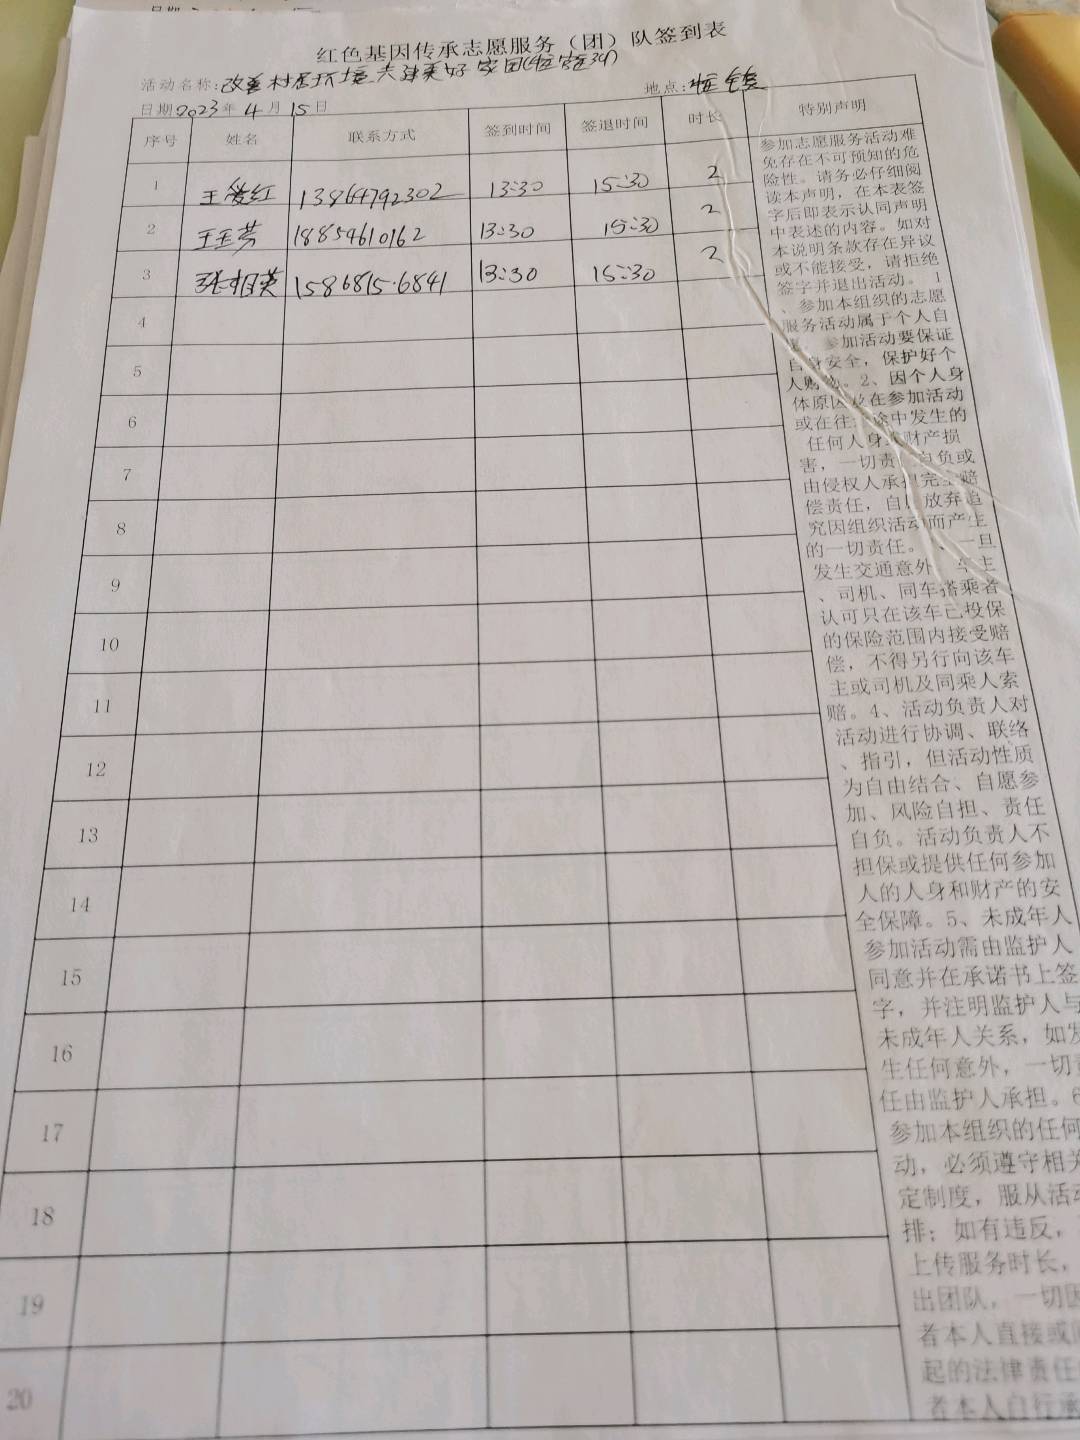 红色基因传承志愿服务（团）队签到表
活动名称:改善村居环境共建美好家园
地点:
日期2023年4月15日
序号 姓名 联系方式 签到时间 签退时间 时长 特别声明
1 王俊红 13864792302 13:30 15:30 2
2 王玉芳 18859610162 13:30 15:30 2
3 张相英 15868156841 13:30 15:30 2
4
5
6
7
8
9
10
11
12
13
14
15
16
17
18
19
20
参加志愿服务活动难
免存在不可预知的危
险性。请务必仔细阅
读本声明，在本表签
字后即表示认同声明
中表述的内容。如对
本说明条款存在异议
或不能接受，请拒绝
签字并退出活动。 1
、参加本组织的志愿
服务活动属于个人自
参加活动要保证
自身安全，保护好个
人财物。2、因个人身
体原因及在参加活动
或在往 途中发生的
任何人身 财产损
害，一切责 自负或
由侵权人承担完全赔
偿责任，自 放弃追
究因组织活动而产生
的一切责任。 、一旦
发生交通意外，车主
、司机、同车搭乘者
认可只在该车已投保
的保险范围内接受赔
偿，不得另行向该车
主或司机及同乘人索
赔。4、活动负责人对
活动进行协调、联络
、指引，但活动性质
为自由结合、自愿参
加、风险自担、责任
自负。活动负责人不
担保或提供任何参加
人的人身和财产的安
全保障。5、未成年人
参加活动需由监护人
同意并在承诺书上签
字，并注明监护人与
未成年人关系，如发
生任何意外，一切责
任由监护人承担。6
参加本组织的任何
动，必须遵守相关
定制度，服从活动
排；如有违反，
上传服务时长，
出团队，一切因
者本人直接或
起的法律责任
者本人自行承